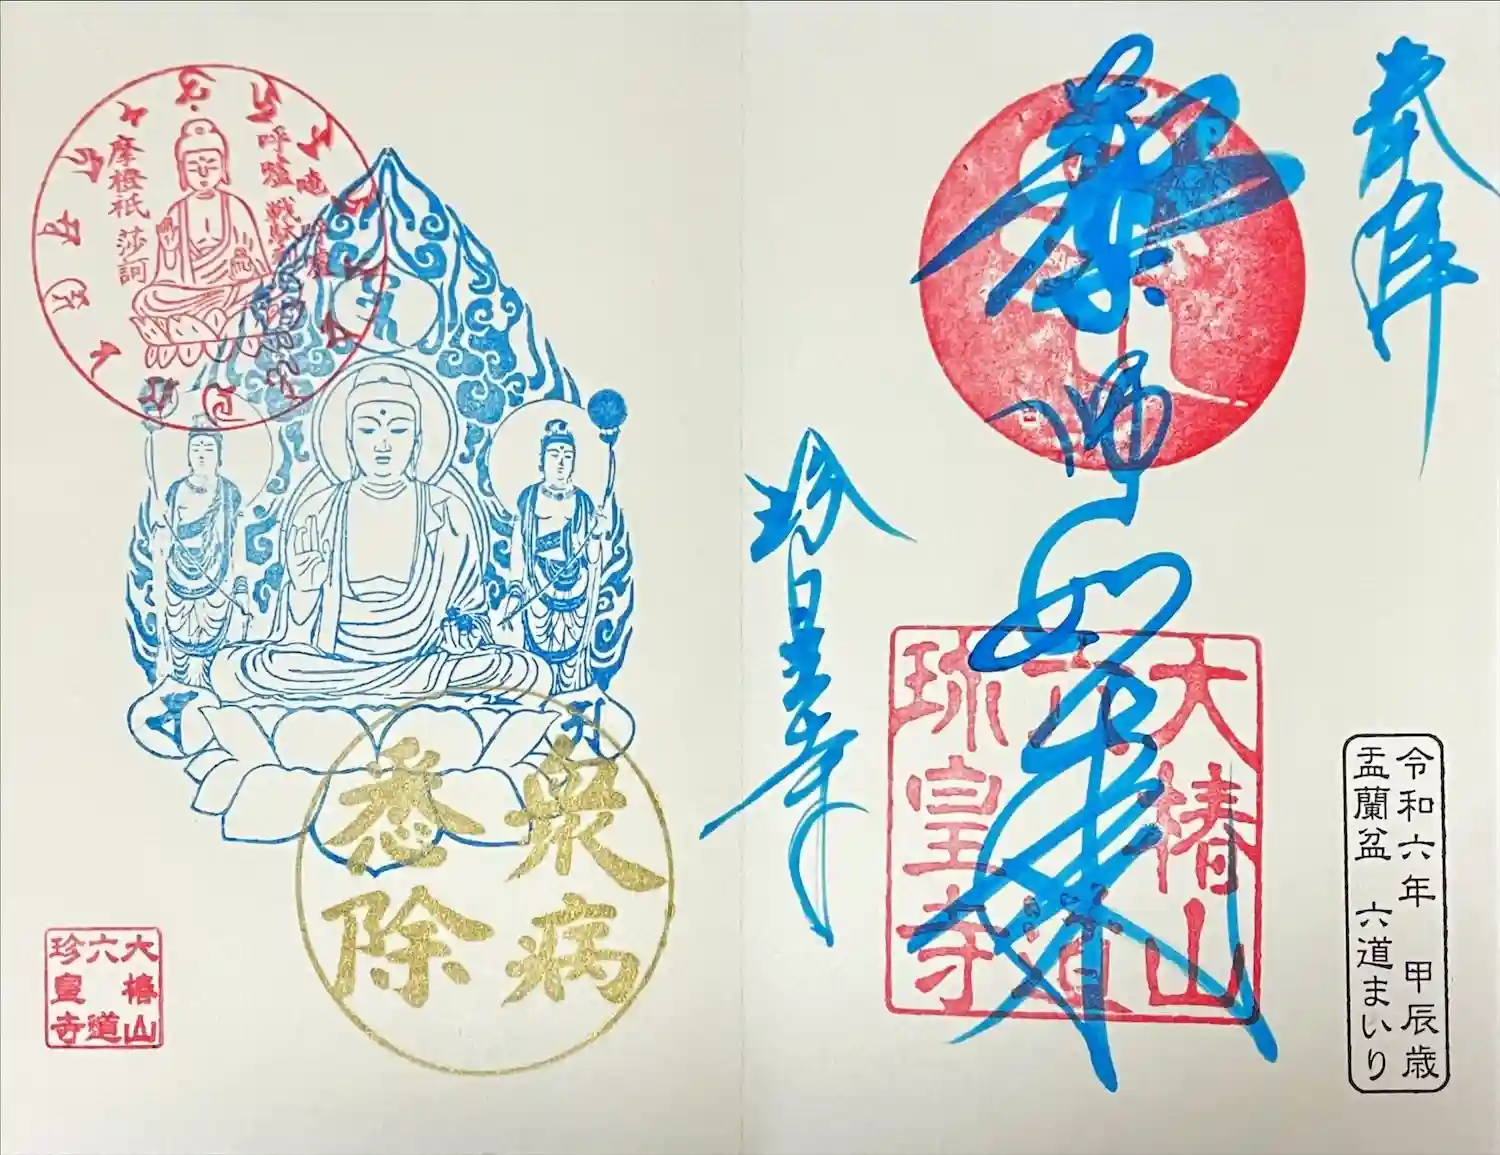 奉拝
薬師如来
珍皇寺
大椿山
六道
珍皇寺
令和六年 甲辰歳
盂蘭盆 六道まいり
呼嚧
戦駄
摩橙祇
莎訶
衆病
悉除
大椿山
六道
珍皇寺